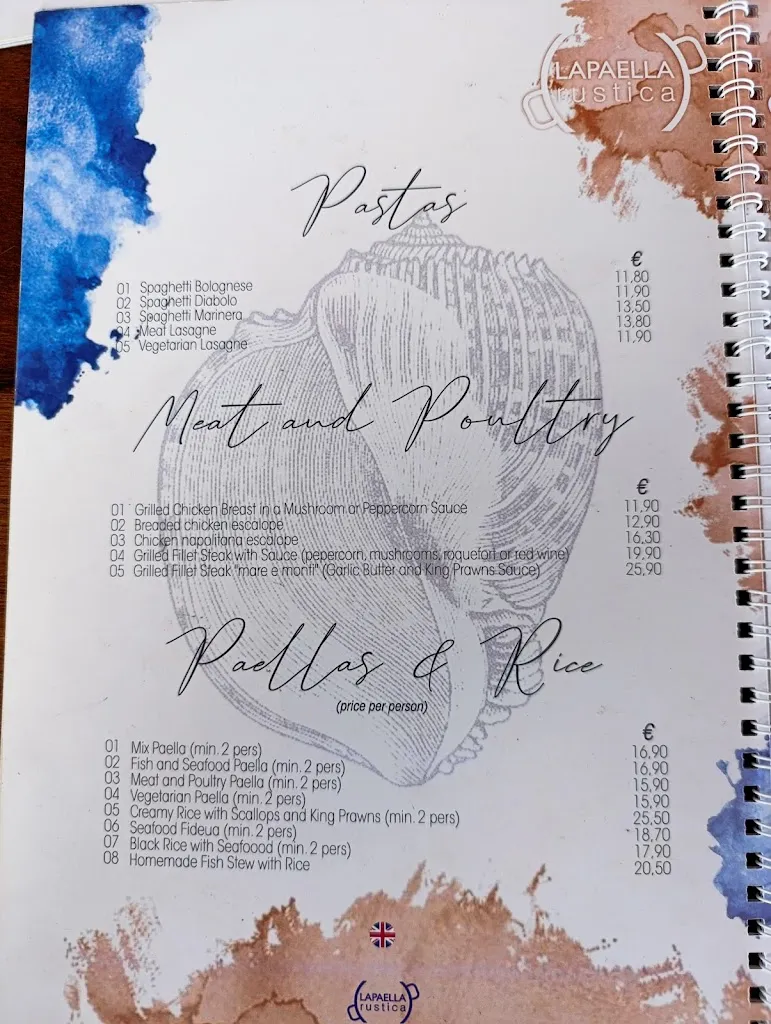 LAPAELLA
rustica
Pastas
€
01 Spaghetti Bolognese 11,80
02 Spaghetti Diabolo 11,90
03 Spaghetti Marinera 13,50
04 Meat Lasagne 13,80
05 Vegetarian Lasagne 11,90
Meat and Poultry
€
01 Grilled Chicken Breast in a Mushroom or Peppercorn Sauce 11,90
02 Breaded chicken escalope 12,90
03 Chicken napolitana escalope 16,30
04 Grilled Fillet Steak with Sauce (pepercorn, mushrooms, roquefort or red wine) 19,90
05 Grilled Fillet Steak "mare e monti" (Garlic Butter and King Prawns Sauce) 25,90
Paellas & Rice
(price per person)
€
01 Mix Paella (min. 2 pers) 16,90
02 Fish and Seafood Paella (min. 2 pers) 16,90
03 Meat and Poultry Paella (min. 2 pers) 15,90
04 Vegetarian Paella (min. 2 pers) 15,90
05 Creamy Rice with Scallops and King Prawns (min. 2 pers) 25,50
06 Seafood Fideua (min. 2 pers) 18,70
07 Black Rice with Seafoood (min. 2 pers) 17,90
08 Homemade Fish Stew with Rice 20,50
LAPAELLA
rustica